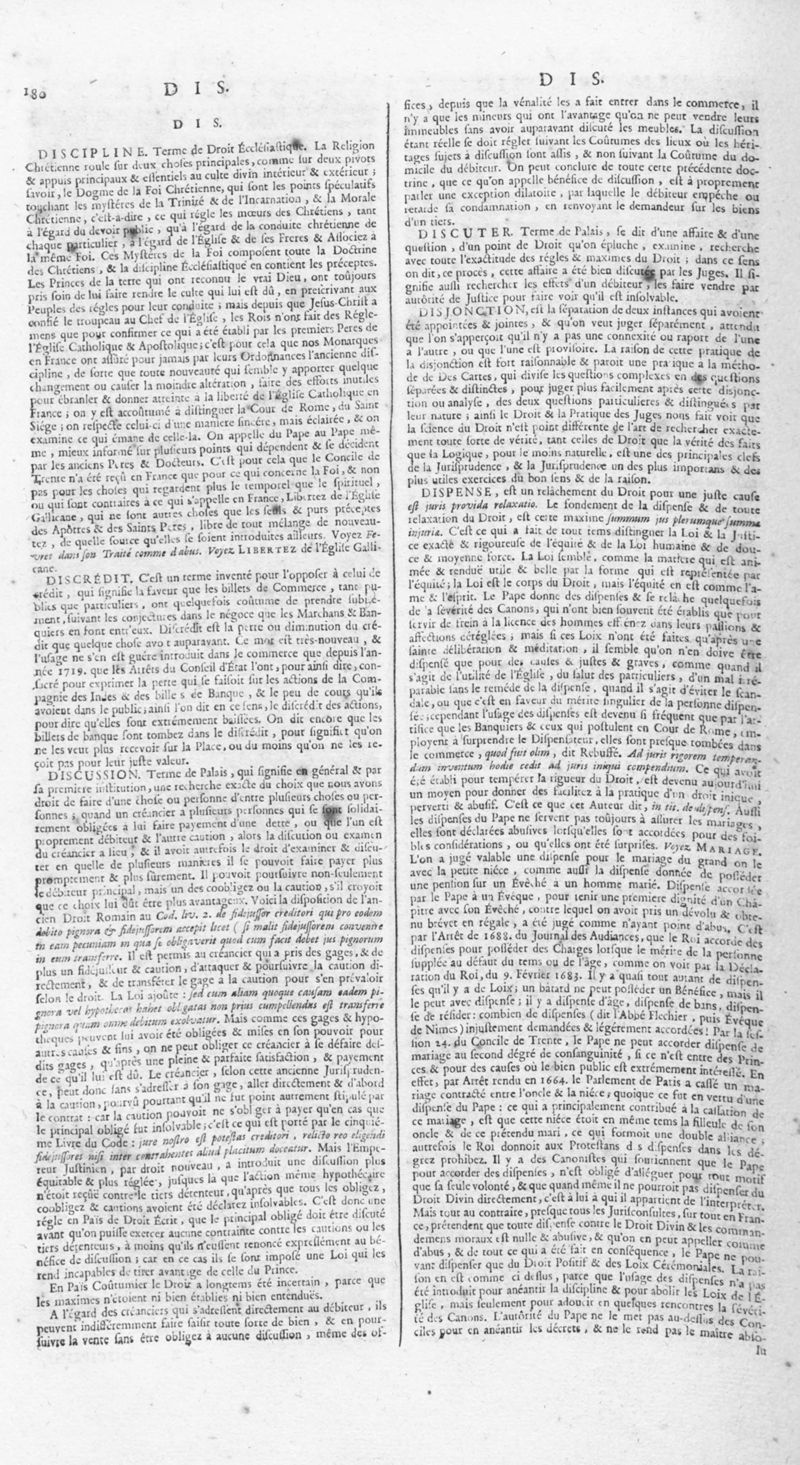 180
D I S.
D I S.
D I S.
DISCIPLINE. Terme de Droit Écclésiastique. La Religion
Chrétienne roule sur deux choses principales, comme sur deux pivots
& appuis principaux & essentiels au culte divin intérieur & extérieur ;
savoir, le Dogme de la Foi Chrétienne, qui sont les points spéculatifs
touchant les mystéres de la Trinité & de l'Incarnation, & la Morale
Chrétienne, c'est-à-dire, ce qui régle les mœurs des Chrétiens, tant
à l'égard du devoir public, qu'à l'égard de la conduite chrétienne de
chaque particulier, à l'égard de l'Église & de ses Freres & Associez à
la même Foi. Ces Mystéres de la Foi composent toute la Doctrine
des Chrétiens, & la discipline Écclésiastique en contient les préceptes.
Les Princes de la terre qui ont reconnu le vrai Dieu, ont toujours
pris soin de lui faire rendre le culte qui lui est dû, en prescrivant aux
Peuples des régles pour leur conduite ; mais depuis que Jesus-Christ a
confié le troupeau au Chef de l'Église, les Rois n'ont fait des Régle-
mens que pour confirmer ce qui a été établi par les premiers Peres de
l'Église Catholique & Apostolique ; c'est pour cela que nos Monarques
en France ont assûré pour jamais par leurs Ordonnances l'ancienne dis-
cipline, de sorte que toute nouveauté qui semble y apporter quelque
changement ou causer la moindre altération, faire des efforts inutiles
pour ébranler & donner atteinte à la liberté de l'Église Catholique en
France ; on y est accoûtumé à distinguer la Cour de Rome, du Saint
Siége ; on respecte celui-ci d'une maniére sincére, mais éclairée, & on
examine ce qui émane de celle-là. On appelle du Pape au Pape mê-
me, mieux informé sur plusieurs points qui dépendent & se décident
par les anciens Peres & Docteurs. C'est pour cela que le Concile de
Trente n'a été reçû en France que pour ce qui concerne la Foi, & non
pas pour les choses qui regardent plus le temporel que le spirituel,
ou qui sont contraires à ce qui s'appelle en France, Libertez de l'Église
Gallicane, qui ne sont autres choses que les seuls & purs préceptes
des Apôtres & des Saints Peres, libre de tout mélange de nouveau-
tez, de quelle source qu'elles se soient introduites ailleurs. Voyez Fe-
vret dans son Traité comme d'abus. Voyez LIBERTEZ de l'Église Galli-
cane.
DISCRÉDIT. C'est un terme inventé pour l'opposer à celui de
crédit, qui signifie la faveur que les billets de Commerce, tant pu-
blics que particuliers, ont quelquefois coûtume de prendre subite-
ment, suivant les conjectures dans le négoce que les Marchans & Ban-
quiers en font entr'eux. Discrédit est la perte ou diminution du cré-
dit que quelque chose avoit auparavant. Ce mot est très-nouveau, &
l'usage ne s'en est guére introduit dans le commerce que depuis l'an-
née 1719. que les Arrêts du Conseil d'État l'ont, pour ainsi dire, con-
sacré pour exprimer la perte qui se faisoit sur les actions de la Com-
pagnie des Indes & des billets de Banque, & le peu de cours qu'ils
avoient dans le public ; ainsi l'on dit en ce sens, le discrédit des actions,
pour dire qu'elles sont extrémement baissées. On dit encore que les
billets de banque sont tombez dans le discrédit, pour signifier qu'on
ne les veut plus recevoir sur la Place, ou du moins qu'on ne les re-
çoit pas pour leur juste valeur.
DISCUSSION. Terme de Palais, qui signifie en général & par
sa premiere institution, une recherche exacte du choix que nous avons
droit de faire d'une chose ou personne d'entre plusieurs choses ou per-
sonnes ; quand un créancier a plusieurs personnes qui se sont solidai-
rement obligées à lui faire payement d'une dette, ou que l'un est
proprement débiteur & l'autre caution, alors la discution ou examen
du créancier a lieu, & il avoit autrefois le droit d'examiner & discu-
ter en quelle de plusieurs maniéres il se pouvoit faire payer plus
promptement & plus sûrement. Il pouvoit poursuivre non-seulement
le débiteur principal, mais un des coobligez ou la caution, s'il croyoit
que ce choix lui dût être plus avantageux. Voici la disposition de l'an-
cien Droit Romain au Cod. liv. 2. de fidejussor creditori qui pro eodem
debito pignora & fidejussorem accepit licet ( si malit fidejussorem convenire
in eam pecuniam in qua se obligaverit quod cum facit debet jus pignorum
in eum transferre. Il est permis au créancier qui a pris des gages, & de
plus un fidéjusseur & caution, d'attaquer & poursuivre la caution di-
rectement, & de transférer le gage à la caution pour s'en prévaloir
selon le droit. La Loi ajoûte : sed cum aliam quoque causam eadem pi-
gnora vel hypothecas habet obligatas non prius compellendus est transferre
pignora quam omne debitum exolvatur. Mais comme ces gages & hypo-
théques peuvent lui avoir été obligées & mises en son pouvoir pour
autres causes & fins, on ne peut obliger ce créancier à se défaire des-
dits gages, qu'après une pleine & parfaite satisfaction, & payement
de ce qu'il lui est dû. Le créancier, selon cette ancienne Jurispruden-
ce, peut donc sans s'adresser à son gage, aller directement & d'abord
à la caution, pourvû pourtant qu'il ne fut point autrement stipulé par
le contrat : car la caution pouvoit ne s'obliger à payer qu'en cas que
le principal obligé fut insolvable ; c'est ce qui est porté par le cinquié-
me Livre du Code : jure nostro est potestas creditori, relicto reo eligendi
fidejussores nisi inter contrahentes aliud placitum doceatur. Mais l'Empe-
reur Justinien, par droit nouveau, a introduit une discussion plus
équitable & plus réglée, jusques là que l'action même hypothécaire
n'étoit reçûë contre le tiers détenteur, qu'après que tous les obligez,
coobligez & cautions avoient été déclarez insolvables. C'est donc une
régle en Païs de Droit Écrit, que le principal obligé doit être discuté
avant qu'on puisse exercer aucune contrainte contre les cautions ou les
tiers détenteurs, à moins qu'ils n'eussent renoncé expressément au bé-
néfice de discussion ; car en ce cas ils se sont imposé une Loi qui les
rend incapables de tirer avantage de celle du Prince.
En Païs Coûtumier le Droit a longtems été incertain, parce que
les maximes n'étoient ni bien établies ni bien entenduës.
A l'égard des créanciers qui s'adressent directement au débiteur, ils
peuvent indifféremment faire saisir toute sorte de bien, & en pour-
suivre la vente sans être obligez à aucune discussion, même des of-
fices, depuis que la vénalité les a fait entrer dans le commerce, il
n'y a que les mineurs qui ont l'avantage qu'on ne peut vendre leurs
immeubles sans avoir auparavant discuté les meubles. La discussion
étant réelle se doit régler suivant les Coûtumes des lieux où les héri-
tages sujets à discussion sont assis, & non suivant la Coûtume du do-
micile du débiteur. On peut conclure de toute cette précédente doc-
trine, que ce qu'on appelle bénéfice de discussion, est à proprement
parler une exception dilatoire, par laquelle le débiteur empêche ou
retarde sa condamnation, en renvoyant le demandeur sur les biens
d'un tiers.
DISCUTER. Terme de Palais, se dit d'une affaire & d'une
question, d'un point de Droit qu'on épluche, examine, recherche
avec toute l'exactitude des régles & maximes du Droit ; dans ce sens
on dit, ce procès, cette affaire a été bien discutée par les Juges. Il si-
gnifie aussi rechercher les effets d'un débiteur, les faire vendre par
autôrité de Justice pour faire voir qu'il est insolvable.
DISJONCTION, est la séparation de deux instances qui avoient
été appointées & jointes, & qu'on veut juger séparément, attendu
que l'on s'apperçoit qu'il n'y a pas une connexité ou raport de l'une
à l'autre, ou que l'une est provisoire. La raison de cette pratique de
la disjonction est fort raisonnable & paroit une pratique à la métho-
de de Des Cartes, qui divise les questions complexes en des questions
séparées & distinctes, pour juger plus facilement après cette disjonc-
tion ou analyse, des deux questions particulieres & distinguées par
leur nature ; ainsi le Droit & la Pratique des Juges nous fait voir que
la science du Droit n'est point différente de l'art de rechercher exacte-
ment toute sorte de vérité, tant celles de Droit que la vérité des faits
que la Logique, pour le moins naturelle, est une des principales clefs
de la Jurisprudence, & la Jurisprudence un des plus importans & des
plus utiles exercices du bon sens & de la raison.
DISPENSE, est un relâchement du Droit pour une juste cause
est juris provida relaxatio. Le fondement de la dispense & de toute
relaxation du Droit, est cette maxime summum jus plerumque summa
injuria. C'est ce qui a fait de tout tems distinguer la Loi & la Justi-
ce exacte & rigoureuse de l'équité & de la Loi humaine & de dou-
ce & moyenne force. La Loi semble, comme la matiére qui est ani-
mée & rendue utile & belle par la forme qui est représentée par
l'équité ; la Loi est le corps du Droit, mais l'équité en est comme l'a-
me & l'esprit. Le Pape donne des dispenses & se relâche quelquefois
de la sévérité des Canons, qui n'ont bien souvent été établis que pour
servir de frein à la licence des hommes effrenez dans leurs passions &
affections déréglées ; mais si ces Loix n'ont été faites qu'après une
sainte délibération & méditation, il semble qu'on n'en doive être
dispensé que pour des causes & justes & graves, comme quand il
s'agit de l'utilité de l'Église, du salut des particuliers, d'un mal irré-
parable sans le reméde de la dispense, quand il s'agit d'éviter le scan-
dale, ou que c'est en faveur du mérite singulier de la personne dispen-
sée : cependant l'usage des dispenses est devenu si fréquent que par l'ar-
tifice que les Banquiers & ceux qui postulent en Cour de Rome, em-
ployent à surprendre le Dispensateur, elles sont presque tombées dans
le commerce, quod fuit olim, dit Rebuffe. Ad juris rigorem temperan-
dam inventum hodie cedit ad juris iniqui compendium. Ce qui avoit
été établi pour tempérer la rigueur du Droit, est devenu aujourd'hui
un moyen pour donner des facilitez à la pratique d'un droit inique,
perverti & abusif. C'est ce que cet Auteur dit, in tit. de dispens. Aussi
les dispenses du Pape ne servent pas toûjours à assurer les mariages,
elles sont déclarées abusives lorsqu'elles sont accordées pour des foi-
bles considérations, ou qu'elles ont été surprises. Voyez MARIAGE.
L'on a jugé valable une dispense pour le mariage du grand oncle
avec la petite niéce, comme aussi la dispense donnée de posséder
une pention sur un Évêché à un homme marié. Dispense accordée
par le Pape à un Évêque, pour tenir une premiere dignité d'un Cha-
pitre avec son Évêché, contre lequel on avoit pris un dévolu & obte-
nu brévet en régale, a été jugé comme n'ayant point d'abus. C'est
par l'Arrêt de 1688. du Journal des Audiances, que le Roi accorde des
dispenses pour posséder des Charges lorsque le mérite de la personne
supplée au défaut du tems ou de l'âge, comme on voit par la Décla-
ration du Roi, du 9. Février 1683. Il y a quasi tout autant de dispen-
ses qu'il y a de Loix ; un bâtard ne peut posséder un Bénéfice, mais il
le peut avec dispense ; il y a dispense d'âge, dispense de bans, dispen-
se de résider : combien de dispenses ( dit l'Abbé Flechier, puis Évêque
de Nîmes ) injustement demandées & légérement accordées ! Par la ses-
sion 24. du Concile de Trente, le Pape ne peut accorder dispense de
mariage au second dégré de consanguinité, si ce n'est entre des Prin-
ces & pour des causes où le bien public est extrémement intéressé. En
effet, par Arrêt rendu en 1664. le Parlement de Paris a cassé un ma-
riage contracté entre l'oncle & la niéce, quoique ce fut en vertu d'une
dispense du Pape : ce qui a principalement contribué à la cassation de
ce mariage, est que cette niéce étoit en même tems la filleule de son
oncle & de ce prétendu mari, ce qui formoit une double alliance ;
autrefois le Roi donnoit aux Protestans des dispenses dans les dé-
grez prohibez. Il y a des Canonistes qui soutiennent que le Pape
pour accorder des dispenses, n'est obligé d'alléguer pour tout motif
que sa seule volonté, & que quand même il ne pourroit pas dispenser du
Droit Divin directement, c'est à lui à qui il appartient de l'interpréter.
Mais tout au contraire, presque tous les Jurisconsultes, sur tout en Fran-
ce, prétendent que toute dispense contre le Droit Divin & les comman-
demens moraux est nulle & abusive, & qu'on en peut appeller comme
d'abus, & de tout ce qui a été fait en conséquence, le Pape ne pou-
vant dispenser que du Droit Positif & des Loix Cérémoniales. La rai-
son en est comme ci dessus, parce que l'usage des dispenses n'a pas
été introduit pour anéantir la discipline & pour abolir les Loix de l'É-
glise, mais seulement pour adoucir en quelques rencontres la sévéri-
té des Canons. L'autôrité du Pape ne le met pas au-dessus des Con-
ciles pour en anéantir les décrets, & ne le rend pas le maître abso-
lu